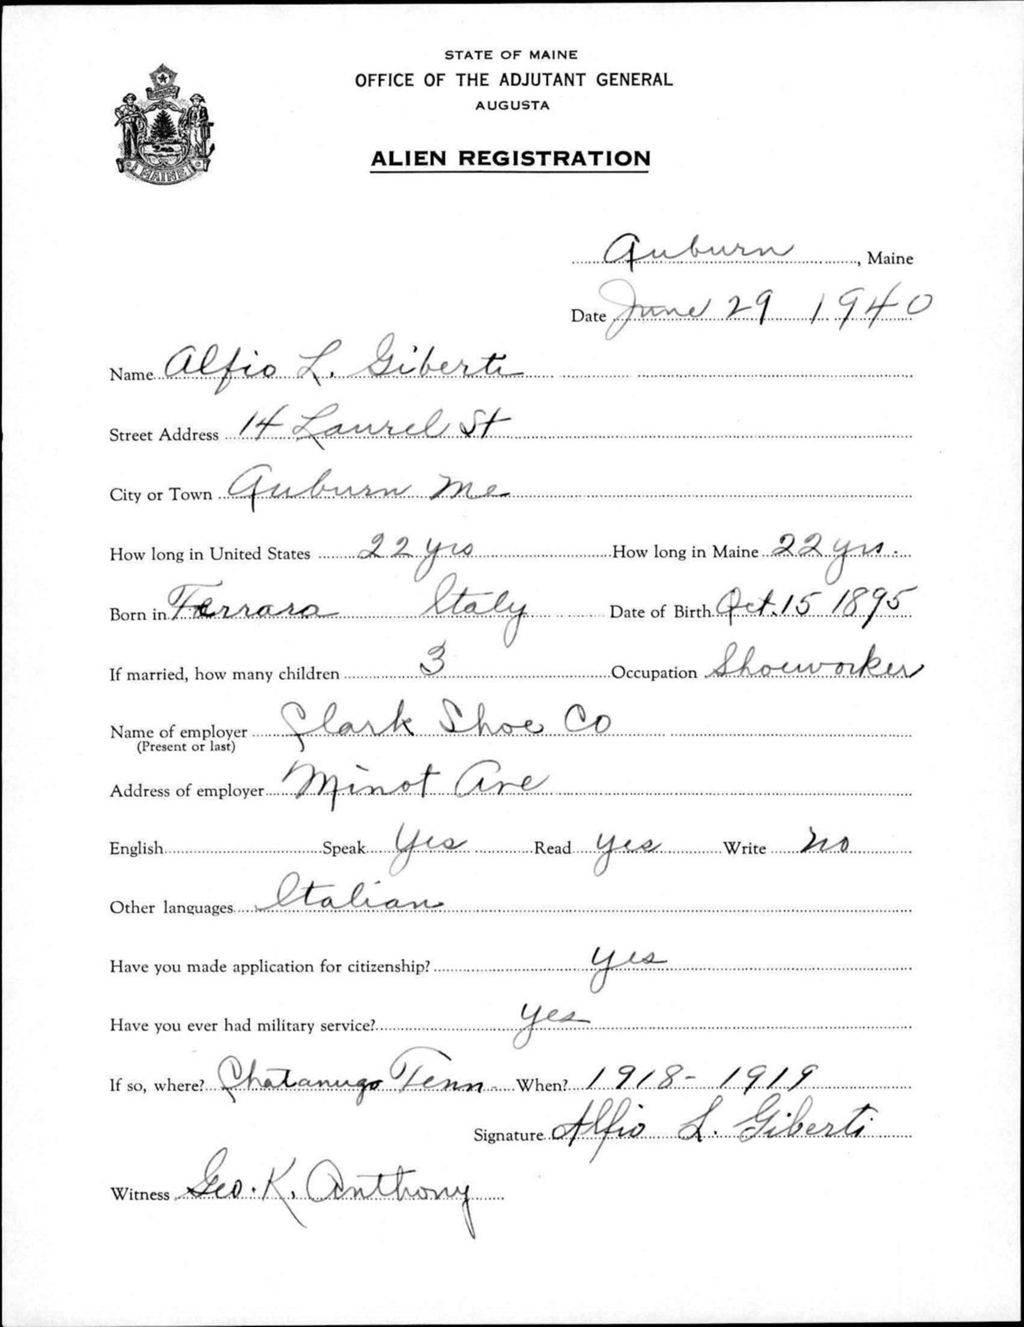 STATE OF MAINE
OFFICE OF THE ADJUTANT GENERAL
AUGUSTA
ALIEN REGISTRATION
MAINE
Auburn, Maine
Date June 29 1940
Name Alfio L. Giberti
Street Address 14 Laurel St
City or Town Auburn Me
How long in United States 22 yrs How long in Maine 22 yrs.
Born in Ferrara Italy Date of Birth Oct. 15 1895
If married, how many children 3 Occupation Shoeworker
Name of employer Clark Shoe Co
(Present or last)
Address of employer Minot Ave
English Speak Yes Read Yes Write No
Other languages Italian
Have you made application for citizenship? Yes
Have you ever had military service? Yes
If so, where? Chatanuga Tenn When? 1918-1919
Signature Alfio L. Giberti
Witness Geo. K. Anthony